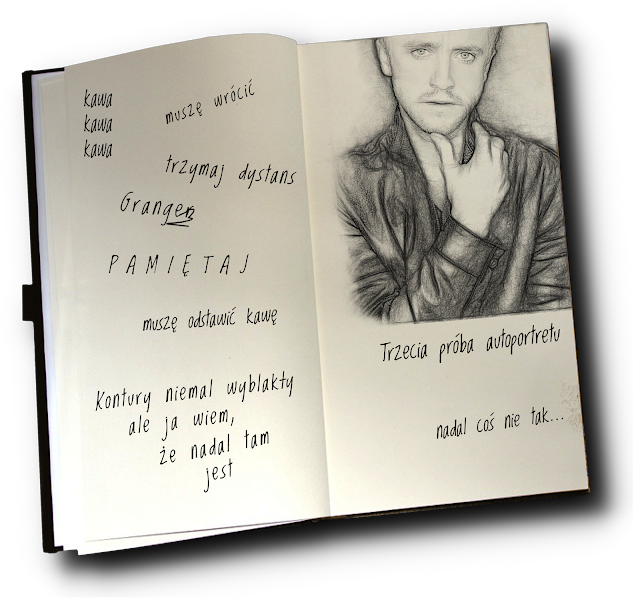 kawa
kawa
kawa
muszę wrócić
trzymaj dystans
Granger
PAMIĘTAJ
muszę odstawić kawę
Kontury niemal wyblakły
ale ja wiem,
że nadal tam
jest
Trzecia próba autoportretu
nadal coś nie tak...